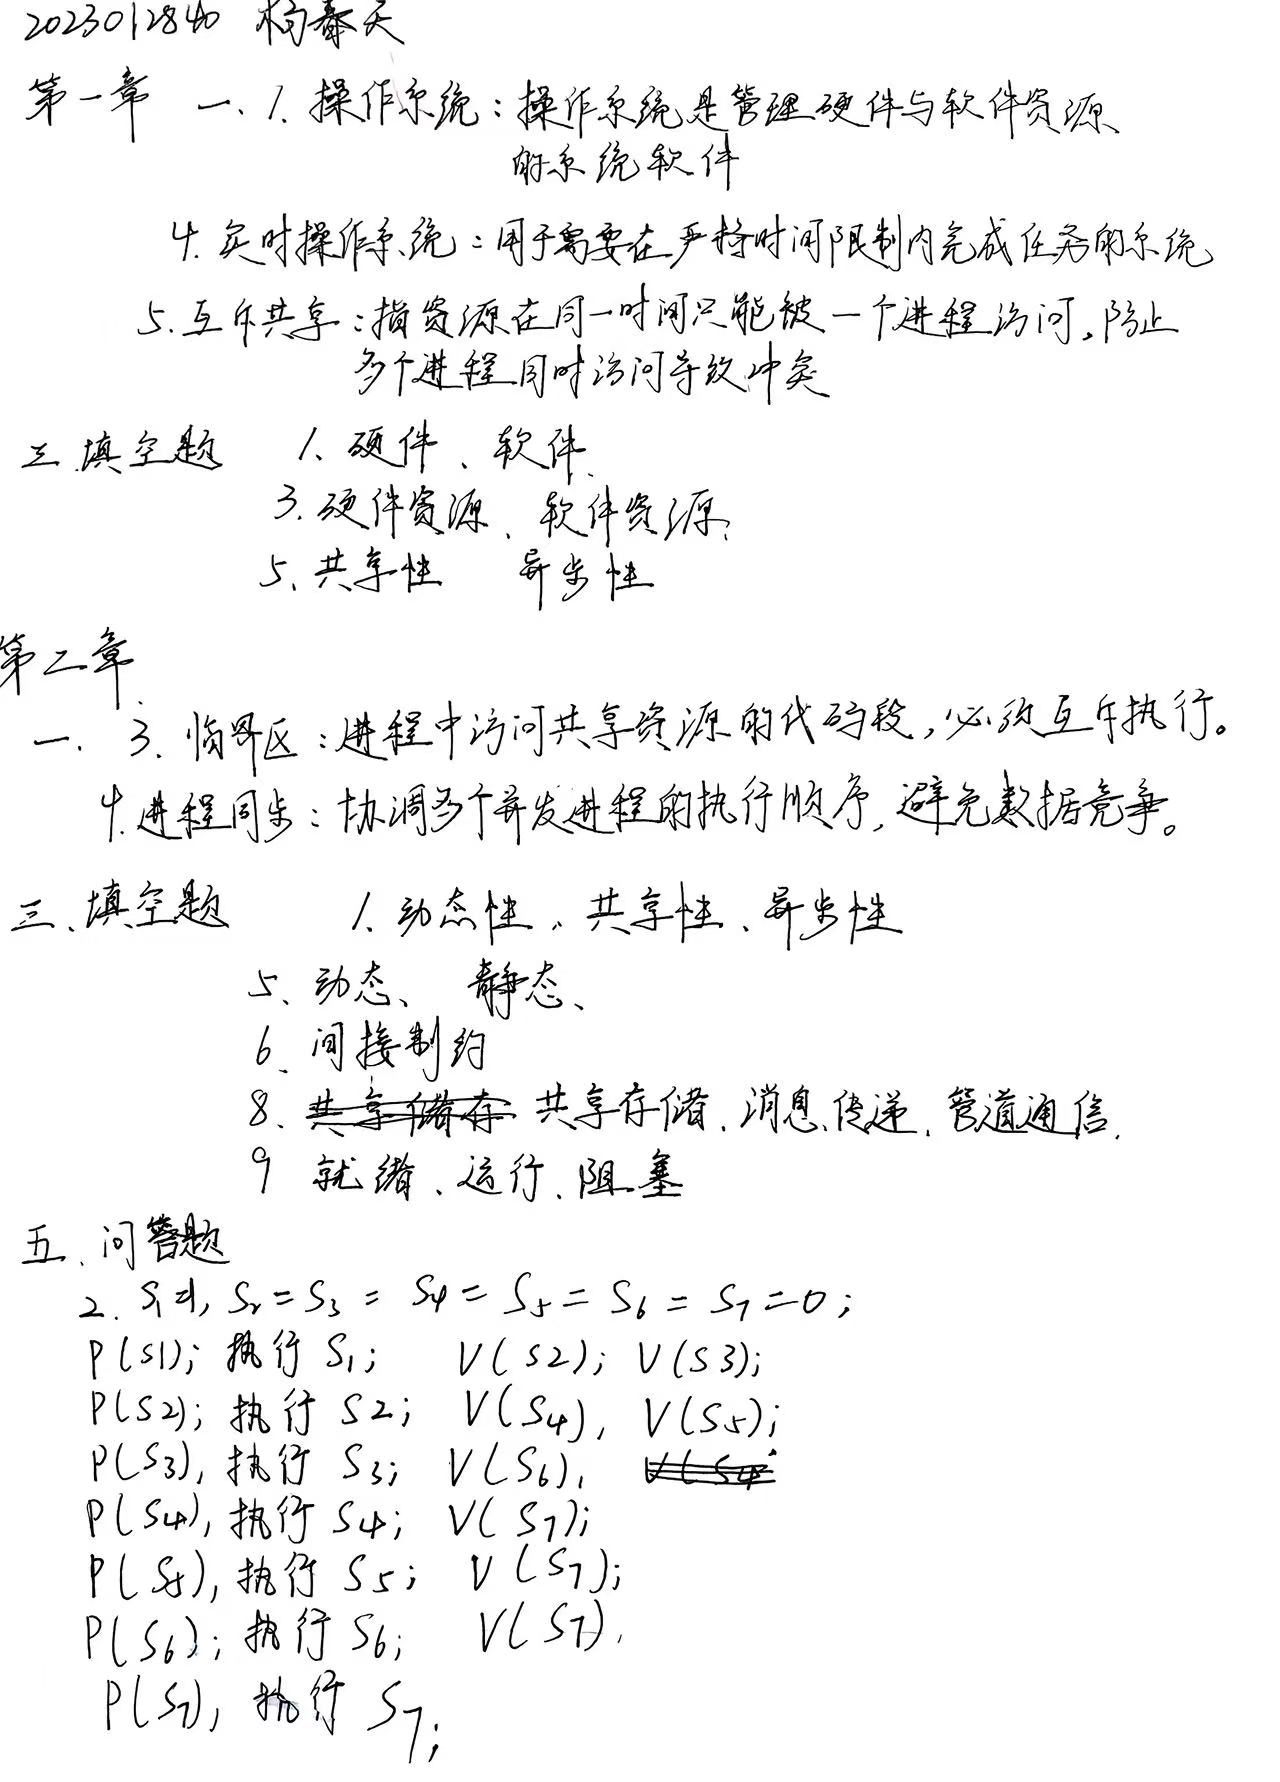 2023012840 杨春天
第一章 一、1. 操作系统：操作系统是管理硬件与软件资源
的系统软件
4. 实时操作系统：用于需要在严格时间限制内完成任务的系统
5. 互斥共享：指资源在同一时间只能被一个进程访问，防止
多个进程同时访问导致冲突
三 填空题 1、硬件、软件、
3. 硬件资源、软件资源、
5、共享性 异步性
第二章
一、3. 临界区：进程中访问共享资源的代码段，必须互斥执行。
4. 进程同步：协调多个并发进程的执行顺序，避免数据竞争。
三、填空题 1. 动态性、共享性、异步性
5、动态、静态、
6、间接制约
8. 共享储存 共享存储、消息传递、管道通信、
9 就绪、运行、阻塞
五、问答题
2. S1=1, S2=S3=S4=S5=S6=S7=0;
P(S1); 执行 S1; V(S2); V(S3);
P(S2); 执行 S2; V(S4), V(S5);
P(S3), 执行 S3; V(S6), V(S4
P(S4), 执行 S4; V(S7);
P(S5), 执行 S5; V(S7);
P(S6); 执行 S6; V(S7),
P(S7), 执行 S7;